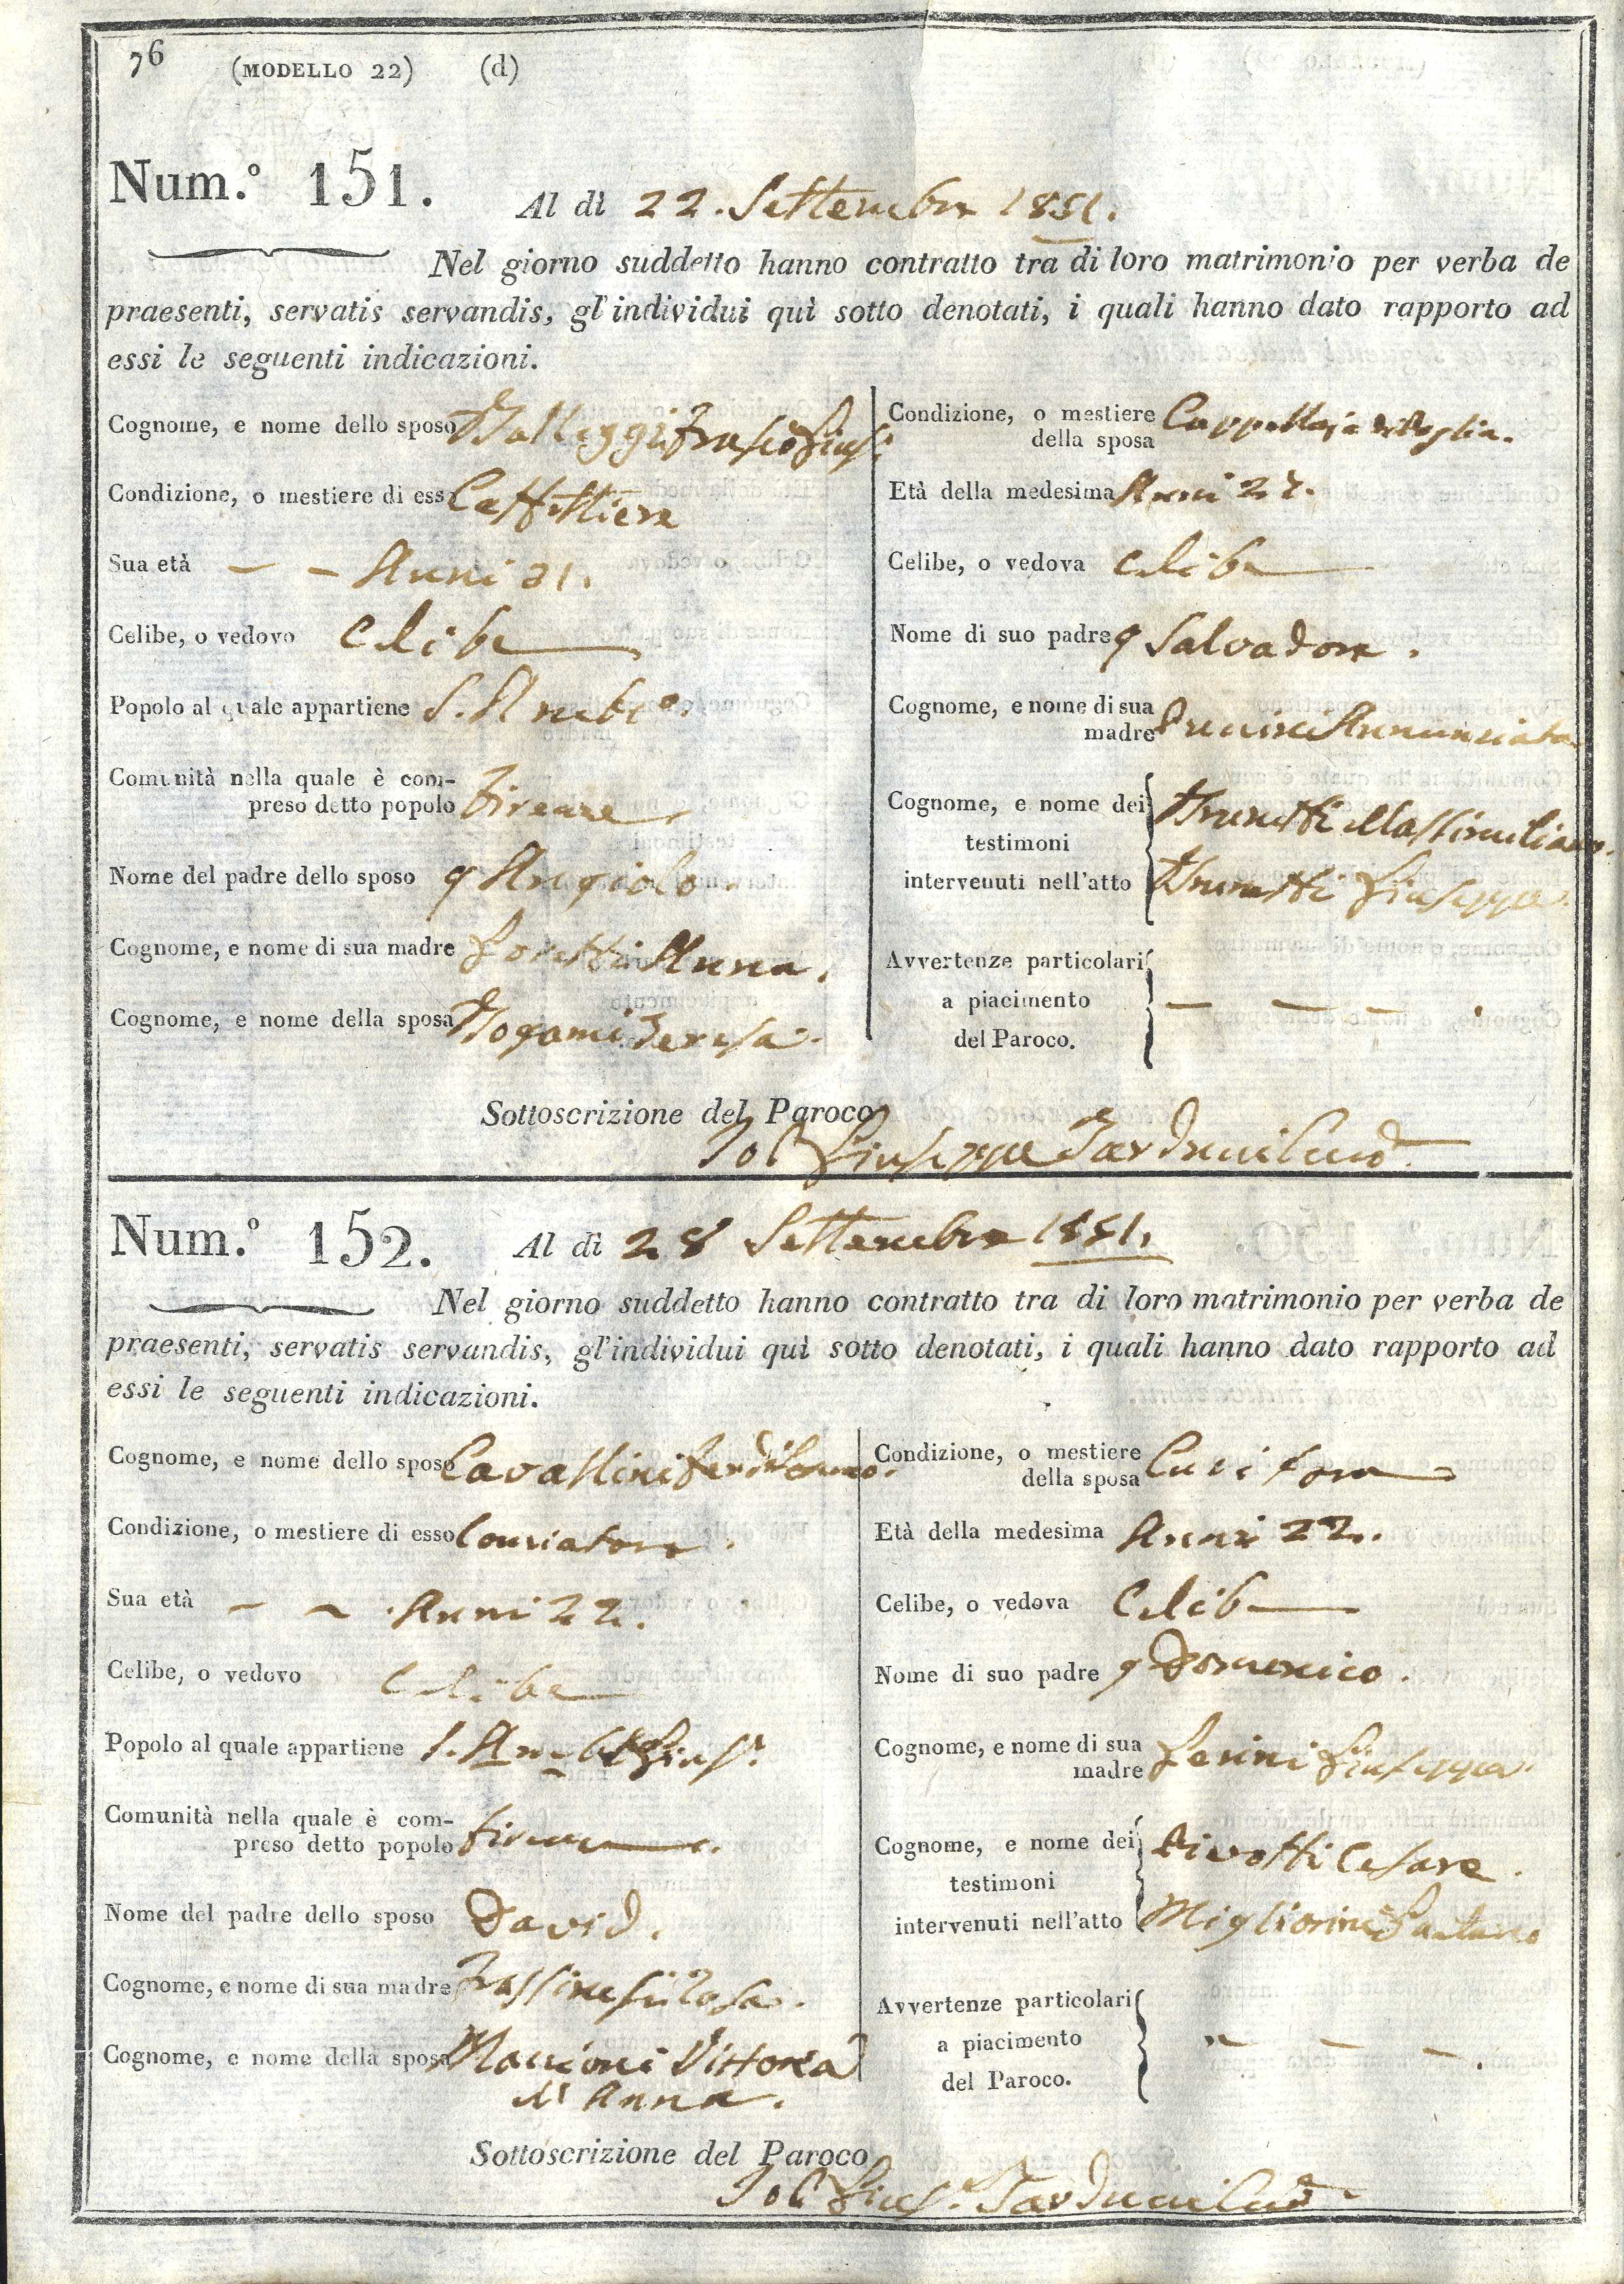 76 (MODELLO 22) (d)
Num.° 151. Al dì 22. Settembre 1851.
Nel giorno suddetto hanno contratto tra di loro matrimonio per verba de
praesenti, servatis servandis, gl'individui quì sotto denotati, i quali hanno dato rapporto ad
essi le seguenti indicazioni.
Cognome, e nome dello sposo
Condizione, o mestiere di esso Caffettiere
Sua età – – Anni 31.
Celibe, o vedovo Celibe
Popolo al quale appartiene S. Amb.º
Comunità nella quale è com-
preso detto popolo Firenze
Nome del padre dello sposo q Angiolo
Cognome, e nome di sua madre Anna.
Cognome, e nome della sposa Bogami Teresa.
Condizione, o mestiere Cappellaja di Paglia.
della sposa
Età della medesima Anni
Celibe, o vedova Celibe
Nome di suo padre q Salvadore.
Cognome, e nome di sua
madre Annunziata
Cognome, e nome dei Brunetti Massimiliano.
testimoni
intervenuti nell'atto Brunetti Giuseppe.
Avvertenze particolari
a piacimento – – – .
del Paroco.
Sottoscrizione del Paroco
Giuseppe
Num.° 152. Al dì 28 Settembre 1851.
Nel giorno suddetto hanno contratto tra di loro matrimonio per verba de
praesenti, servatis servandis, gl'individui quì sotto denotati, i quali hanno dato rapporto ad
essi le seguenti indicazioni.
Cognome, e nome dello sposo Cavallini Ferdinando.
Condizione, o mestiere di esso Conciatore.
Sua età – – Anni 22.
Celibe, o vedovo Celibe
Popolo al quale appartiene S.
Comunità nella quale è com-
preso detto popolo Firenze
Nome del padre dello sposo David.
Cognome, e nome di sua madre Rosa.
Cognome, e nome della sposa Mancioni Vittoria
M. Anna.
Condizione, o mestiere
della sposa Cucitora
Età della medesima Anni 22.
Celibe, o vedova Celibe
Nome di suo padre q Domenico.
Cognome, e nome di sua
madre Giuseppa.
Cognome, e nome dei Cesare.
testimoni
intervenuti nell'atto Migliorini Gaetano
Avvertenze particolari
a piacimento – – – .
del Paroco.
Sottoscrizione del Paroco
Gius.e